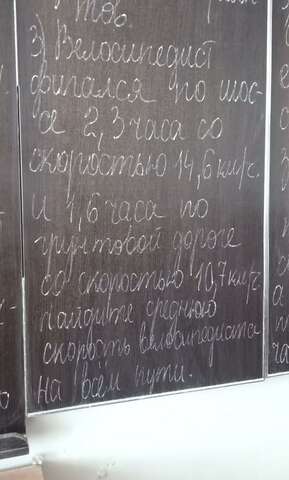 тов.
3) Велосипедист
двигался по шос-
се 2,3 часа со
скоростью 14,6 км/ч.
и 1,6 часа по
грунтовой дороге
со скоростью 10,7 км/ч.
Найдите среднюю
скорость велосипедиста
на всём пути.